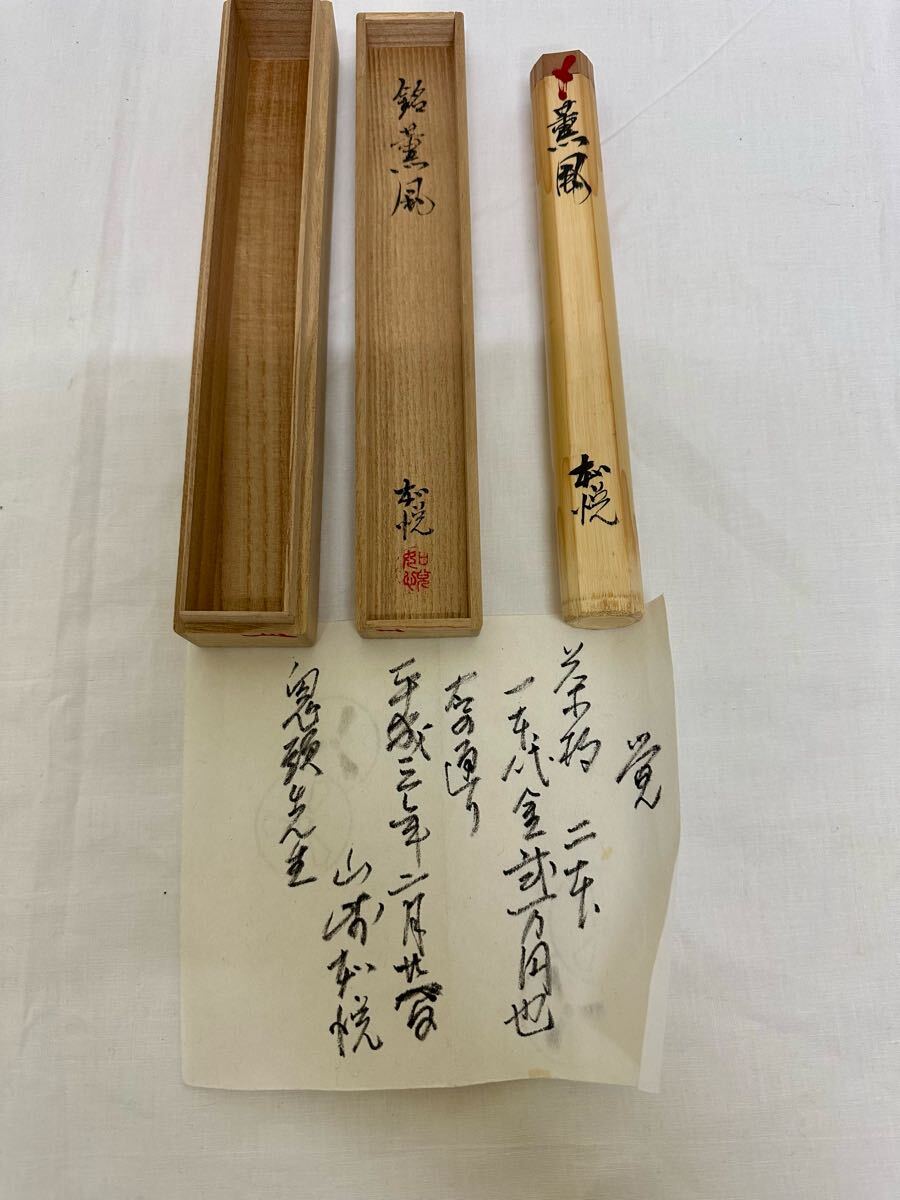 銘 薫風
松悦
薫風
松悦
覚
茶杓 二本
一本代金弐万円也
右の通り
平成三年二月廿
山崎松悦
鬼頭先生